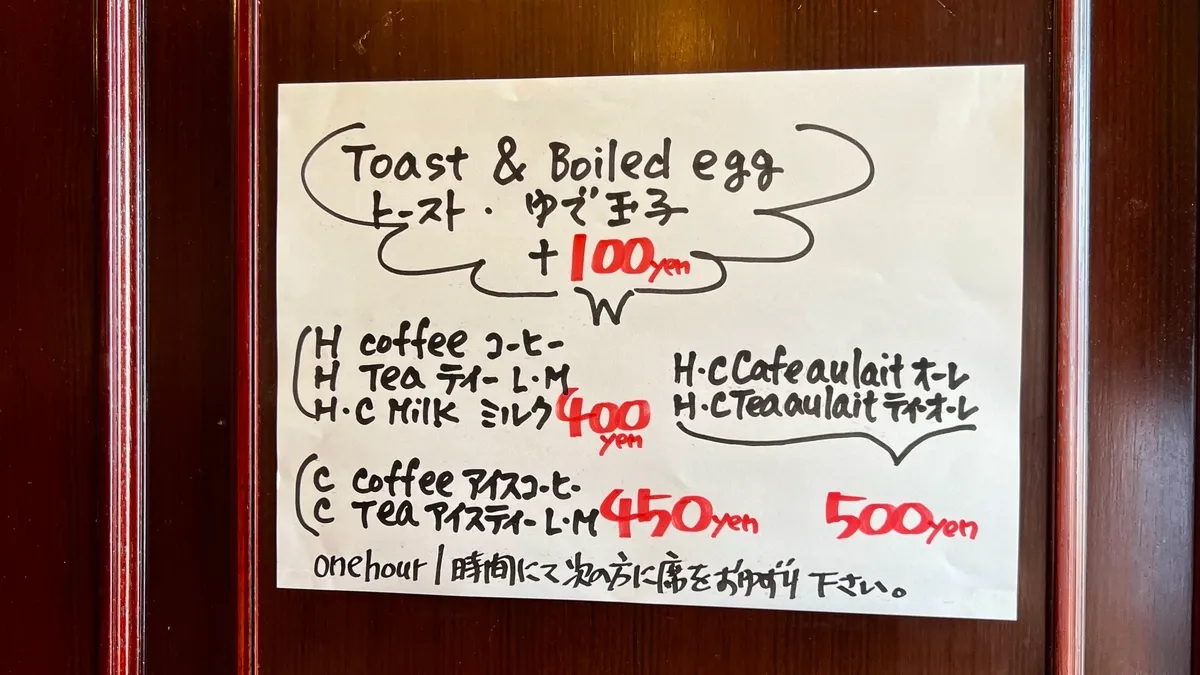 Toast & Boiled egg
トースト・ゆで玉子
+100yen
H coffee コーヒー
H Tea ティー L・M
H・C Milk ミルク 400 yen
H・C Cafe au lait オーレ
H・C Tea au lait ティオーレ
500yen
C coffee アイスコーヒー
C Tea アイスティー L・M 450yen
one hour 1時間にて次の方に席をおゆずり下さい。